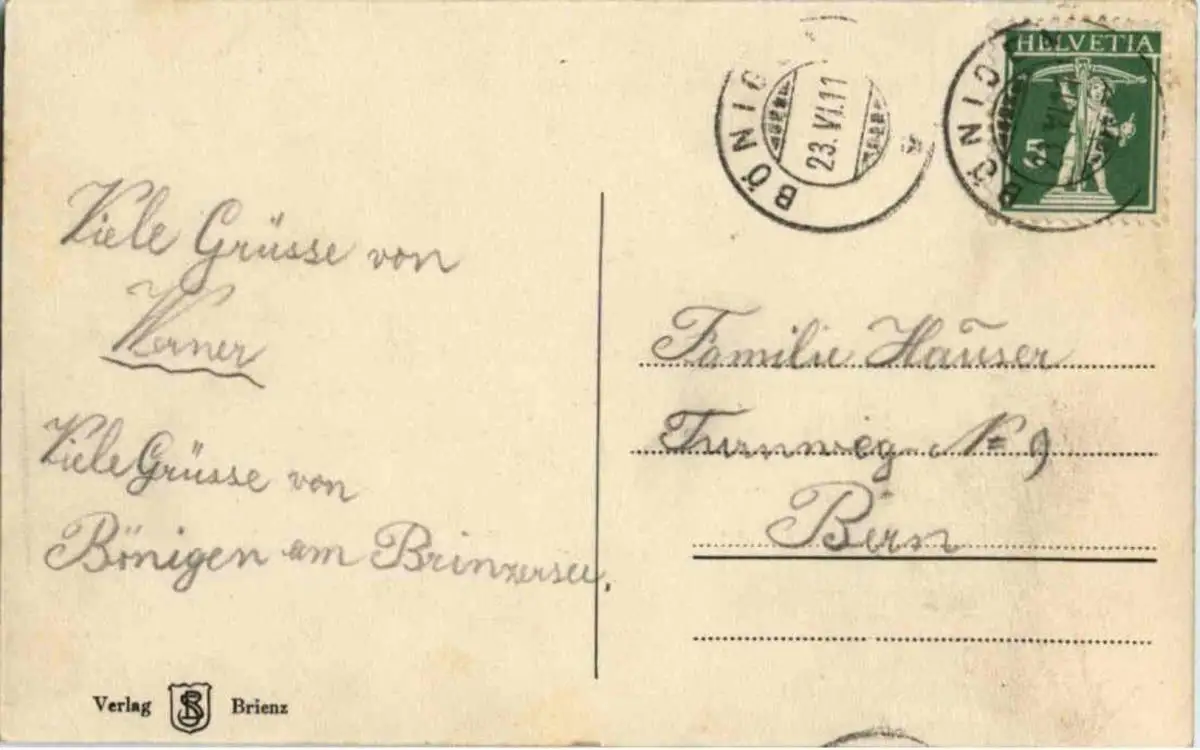 Viele Grüsse von
Werner
Viele Grüsse von
Bönigen am Brinzersee,
Verlag SB Brienz
BÖNIG
23.VI.11
HELVETIA
5
BÖNIGEN
23.VI.11
Familie Hauser
Turnweg N= 9
Bern